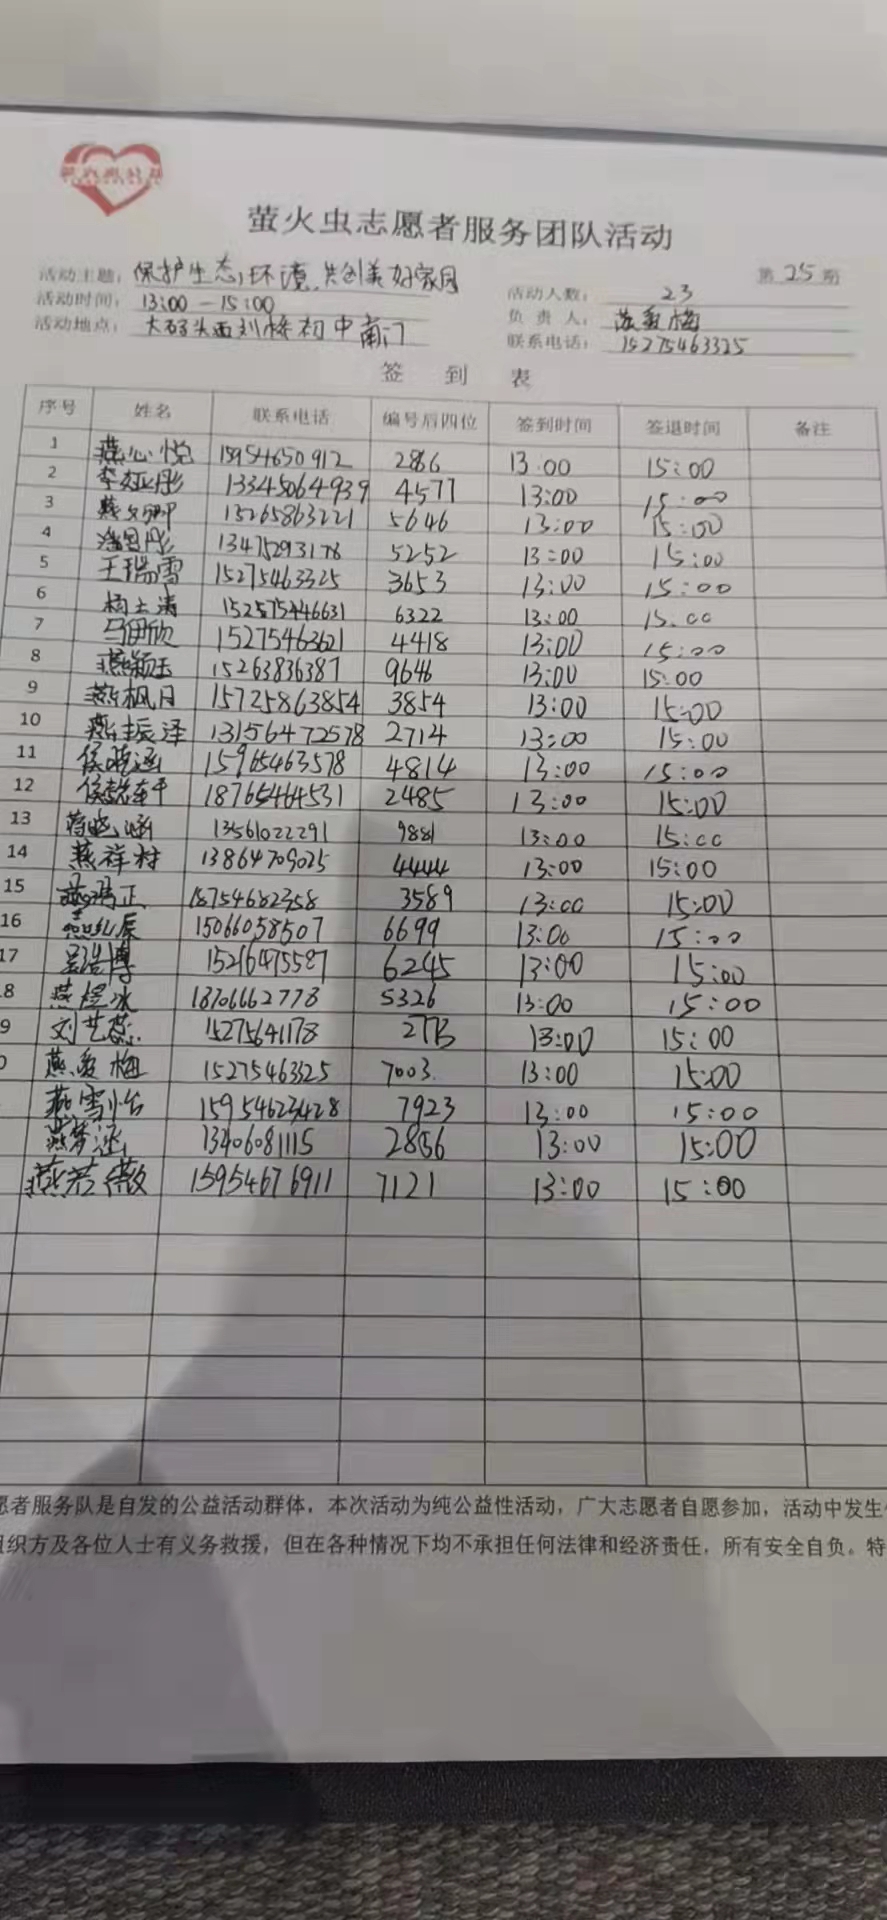 萤火虫志愿者服务团队活动
第 25 期
活动主题: 保护生态环境,共创美好家园
活动人数: 23
活动时间: 13:00 — 15:00
负责人: 燕爱梅
活动地点: 大码头西刘桥初中南门
联系电话: 15275463325
签 到 表
序号 姓名 联系电话 编号后四位 签到时间 签退时间 备注
1 燕心悦 15954650912 2866 13:00 15:00
2 李娅彤 13345064939 4577 13:00 15:00
3 燕文卿 15265863221 5646 13:00 15:00
4 13475293178 5252 13:00 15:00
5 王瑞雪 15275463325 3653 13:00 15:00
6 152575446631 6322 13:00 15:00
7 马伊欣 15275463621 4418 13:00 15:00
8 燕颖玉 15263836387 9646 13:00 15:00
9 燕枫月 15725863854 3854 13:00 15:00
10 燕振泽 13156472578 2714 13:00 15:00
11 侯晓涵 15965463578 4814 13:00 15:00
12 侯懿轩 18765464531 2485 13:00 15:00
13 蒋晓涵 13561022291 9881 13:00 15:00
14 燕祥村 13864709025 4444 13:00 15:00
15 18754682358 3589 13:00 15:00
16 15066058507 6699 13:00 15:00
17 吴浩博 15216475587 6245 13:00 15:00
8 燕煜冰 18706662778 5326 13:00 15:00
9 刘艺蕊 15275641178 2773 13:00 15:00
0 燕爱梅 15275463325 7003 13:00 15:00
燕雪怡 15954623428 7923 13:00 15:00
燕梦涵 13406081115 2856 13:00 15:00
燕若薇 15954676911 7121 13:00 15:00
愿者服务队是自发的公益活动群体，本次活动为纯公益性活动，广大志愿者自愿参加，活动中发生
组织方及各位人士有义务救援，但在各种情况下均不承担任何法律和经济责任，所有安全自负。特